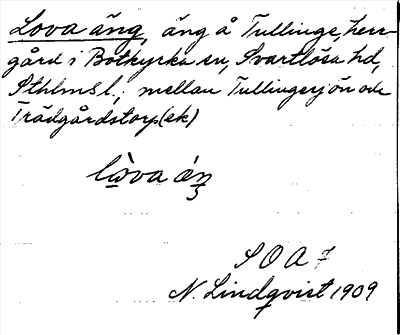 Lova äng, äng å Tullinge herr-
gård i Botkyrka sn, Svartlösa hd,
Sthlms l., mellan Tullingesjön och
Trädgårdstorp (ek)
lò̱va áŋ
S O A 7
N. Lindqvist 1909